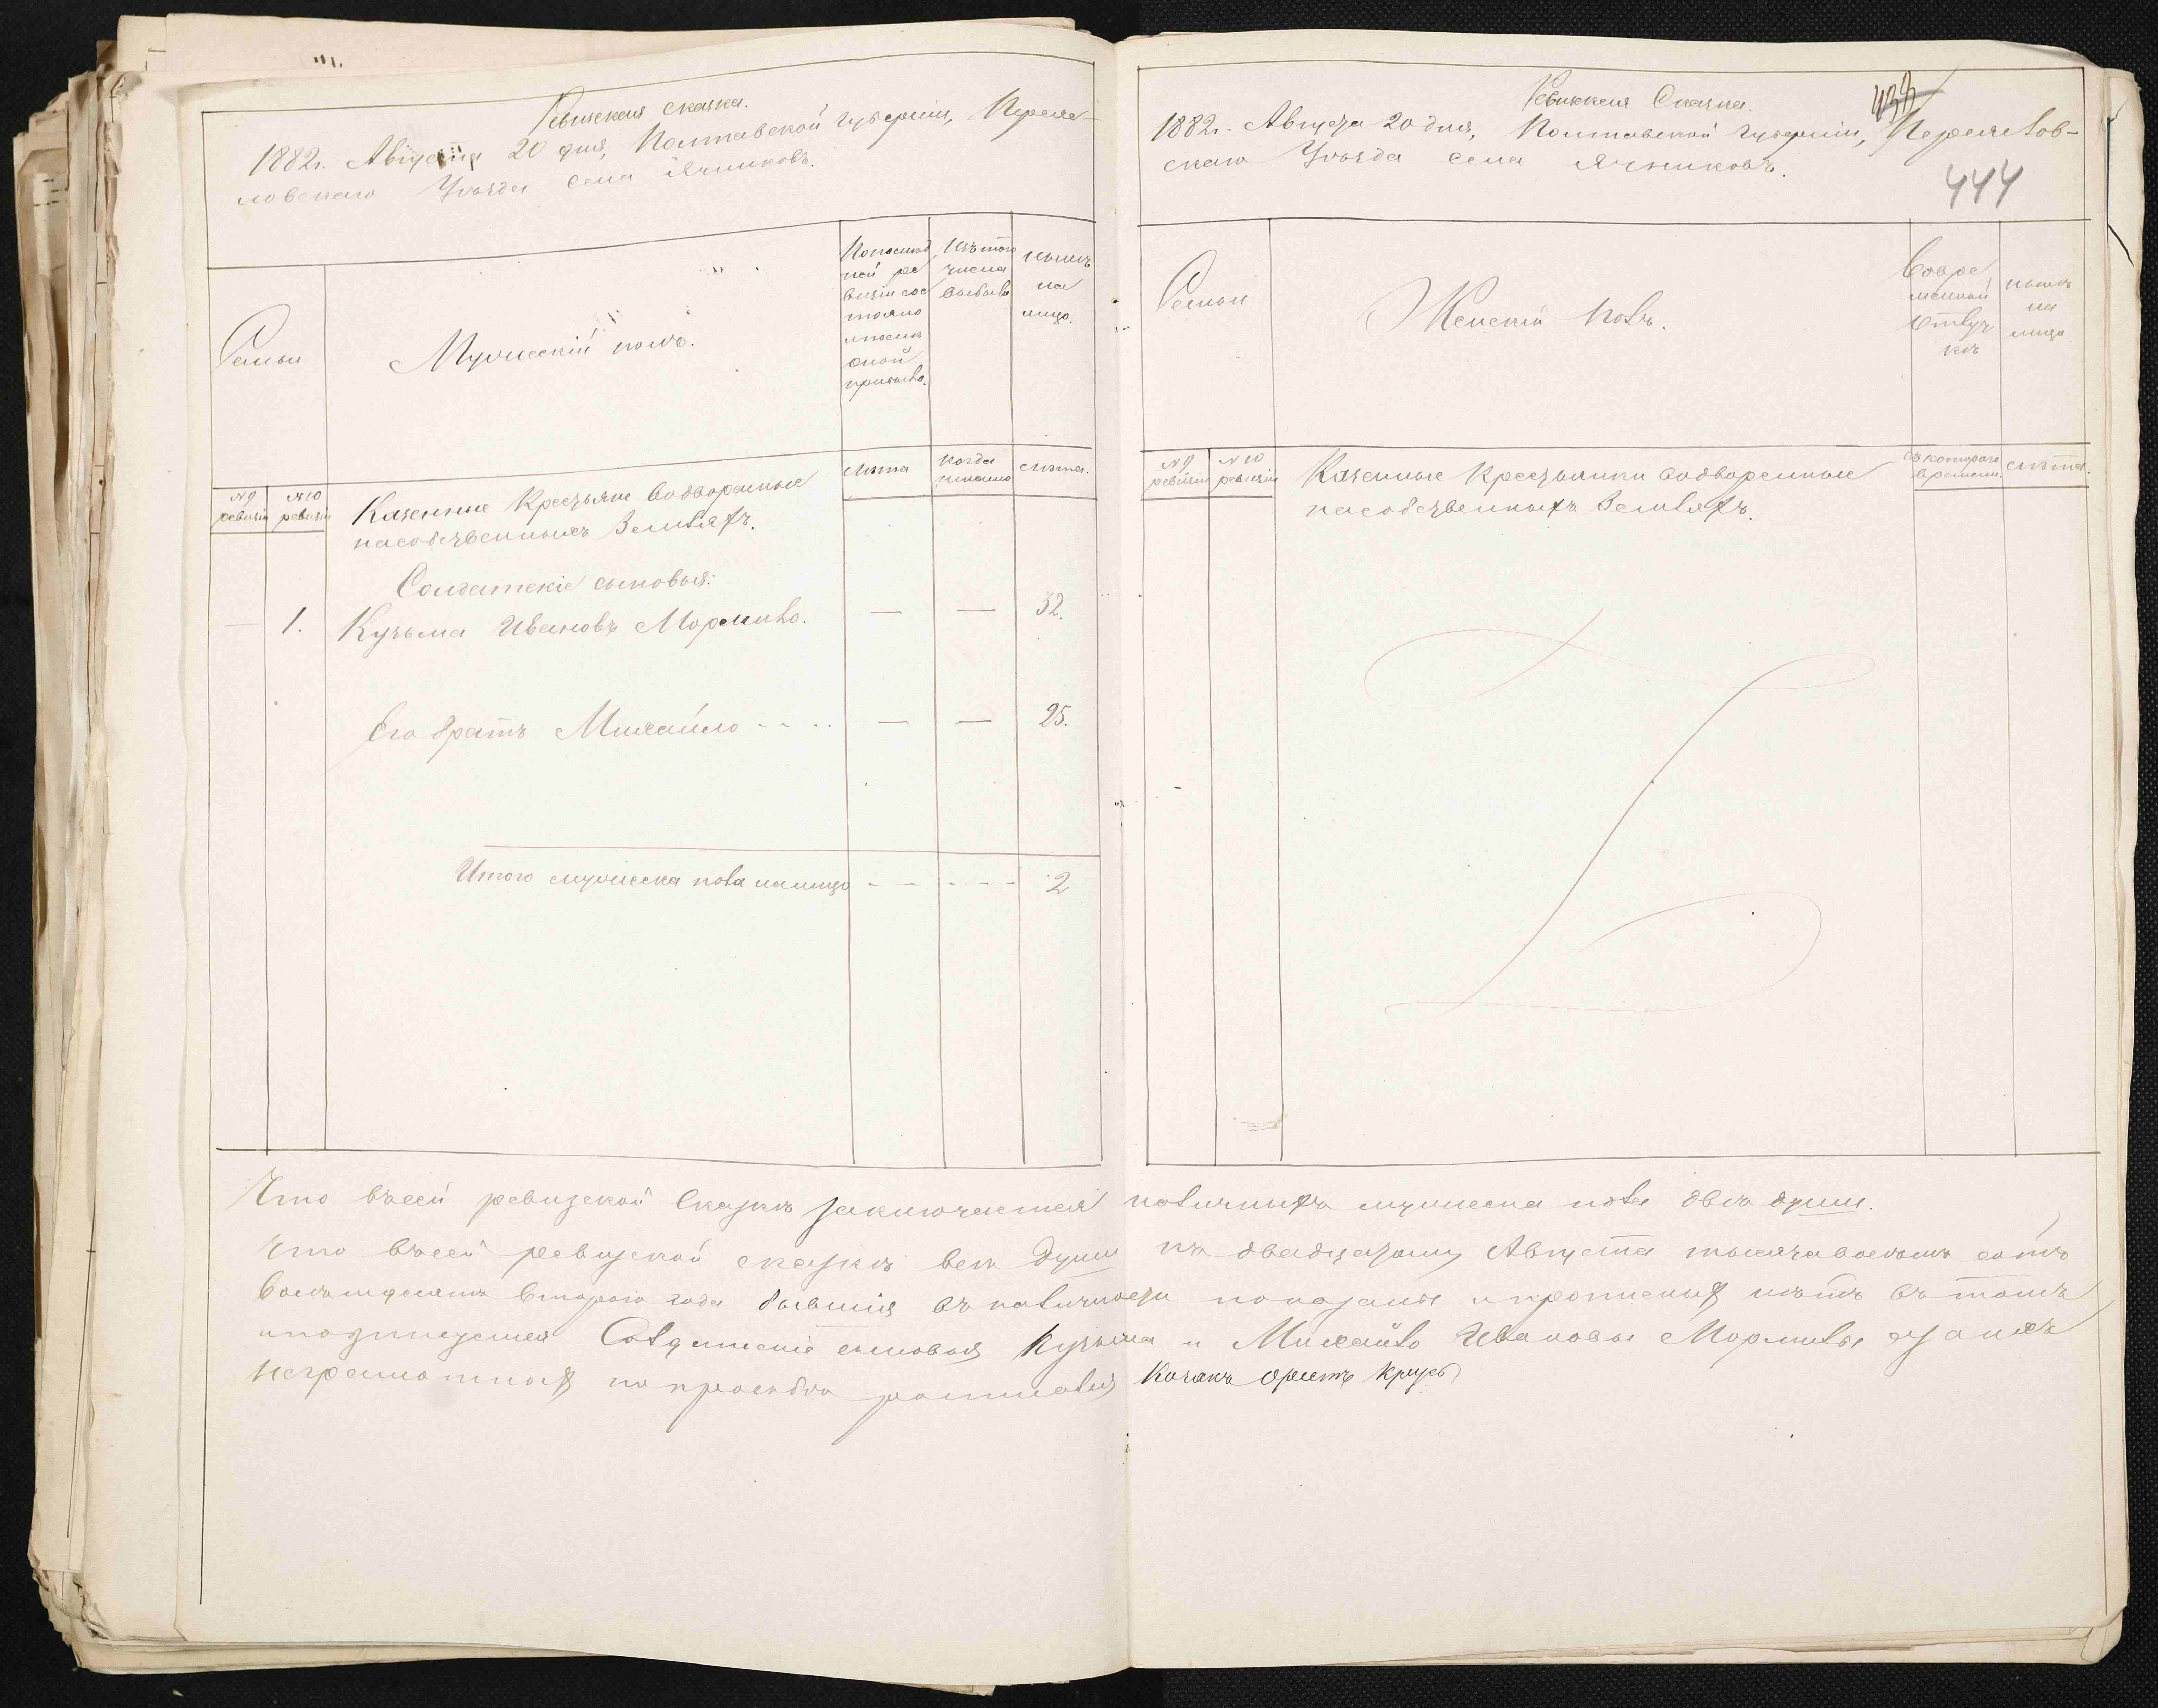 Ревизская сказка.
1882г. Августа 20 дня, Полтавской губерніи, Перея-
словскаго Уѣзда села Ячниковъ.
Семьи
Мужескій полъ.
По послѣд
ней ре
визіи сос
тояло
и послѣ
оной
прибыло.
Изъ того
числа
выбыло
нынѣ
на
лицо.
№ 9
ревизіи
№ 10
ревизіи
Казенные Крестьяне водворенные
на собственныхъ Земляхъ.
Лѣта
Когда
именно
Лѣта.
Солдатскіе сыновья:
1.
Кузьма Ивановъ Мормило. — — 32.
Его братъ Михайло — — 25.
Итого мужеска пола налицо 2
Ревизская Сказка.
1882г. Августа 20 дня, Полтавской губерніи, Переяслов-
скаго Уѣзда села Ячниковъ.
444
Семьи
Женскій полъ.
Во вре
менной
Отлуч
кѣ
нынѣ
на
лицо
№ 9
ревизіи
№ 10
ревизіи
Казенные Крестьянки водворенные
на собственныхъ Земляхъ.
Съ котораго
времени.
Лѣта.
Что въ сей ревизской Сказкѣ заключается наличныхъ мужеска пола двѣ души.
Что въ сей ревизской сказкѣ всѣ души къ двадцатому Августа тысяча восемь сотъ
восемьдесятъ второго года бывшія въ наличности показаны и прописныхъ нѣтъ въ томъ
и подписуемся Солдатскіе сыновья Кузьма и Михайло Ивановы Мормилы а за нихъ
неграмотныхъ по просьбѣ росписался Козакъ